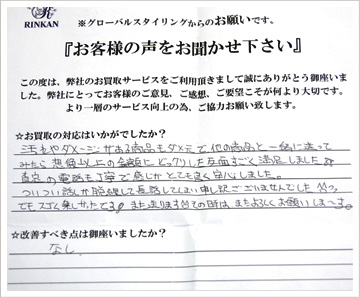 RINKAN
※グローバルスタイリングからのお願いです。
『お客様の声をお聞かせ下さい』
この度は、弊社のお買取サービスをご利用頂きまして誠にありがとう御座いま
した。弊社にとってお客様のご意見、ご感想、ご要望こそが何より大切です。
より一層のサービス向上の為、ご協力お願い致します。
☆お買取の対応はいかがでしたか？
汚れやダメージがある商品もダメ元で他の商品と一緒に送って
みたら想像以上の金額にビックリした反面すごく満足しました
の電話も丁寧で感じがとても良く安心しました。
ついつい話が脱線して長話してしまい申し訳ございませんでした
でもスゴく楽しかったです♪また送ります。その時はまたよろしくお願いしまーす。
☆改善すべき点は御座いましたか？
なし。